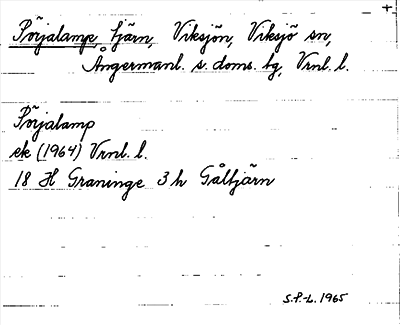 Pörjalamp, tjärn, Viksjön, Viksjö sn,
Ångermanl. s. doms. tg, Vrnl. l.
Pörjalamp
ek (1964) Vrnl. l.
18 H Graninge 3 h Gåltjärn
S.P.-L. 1965